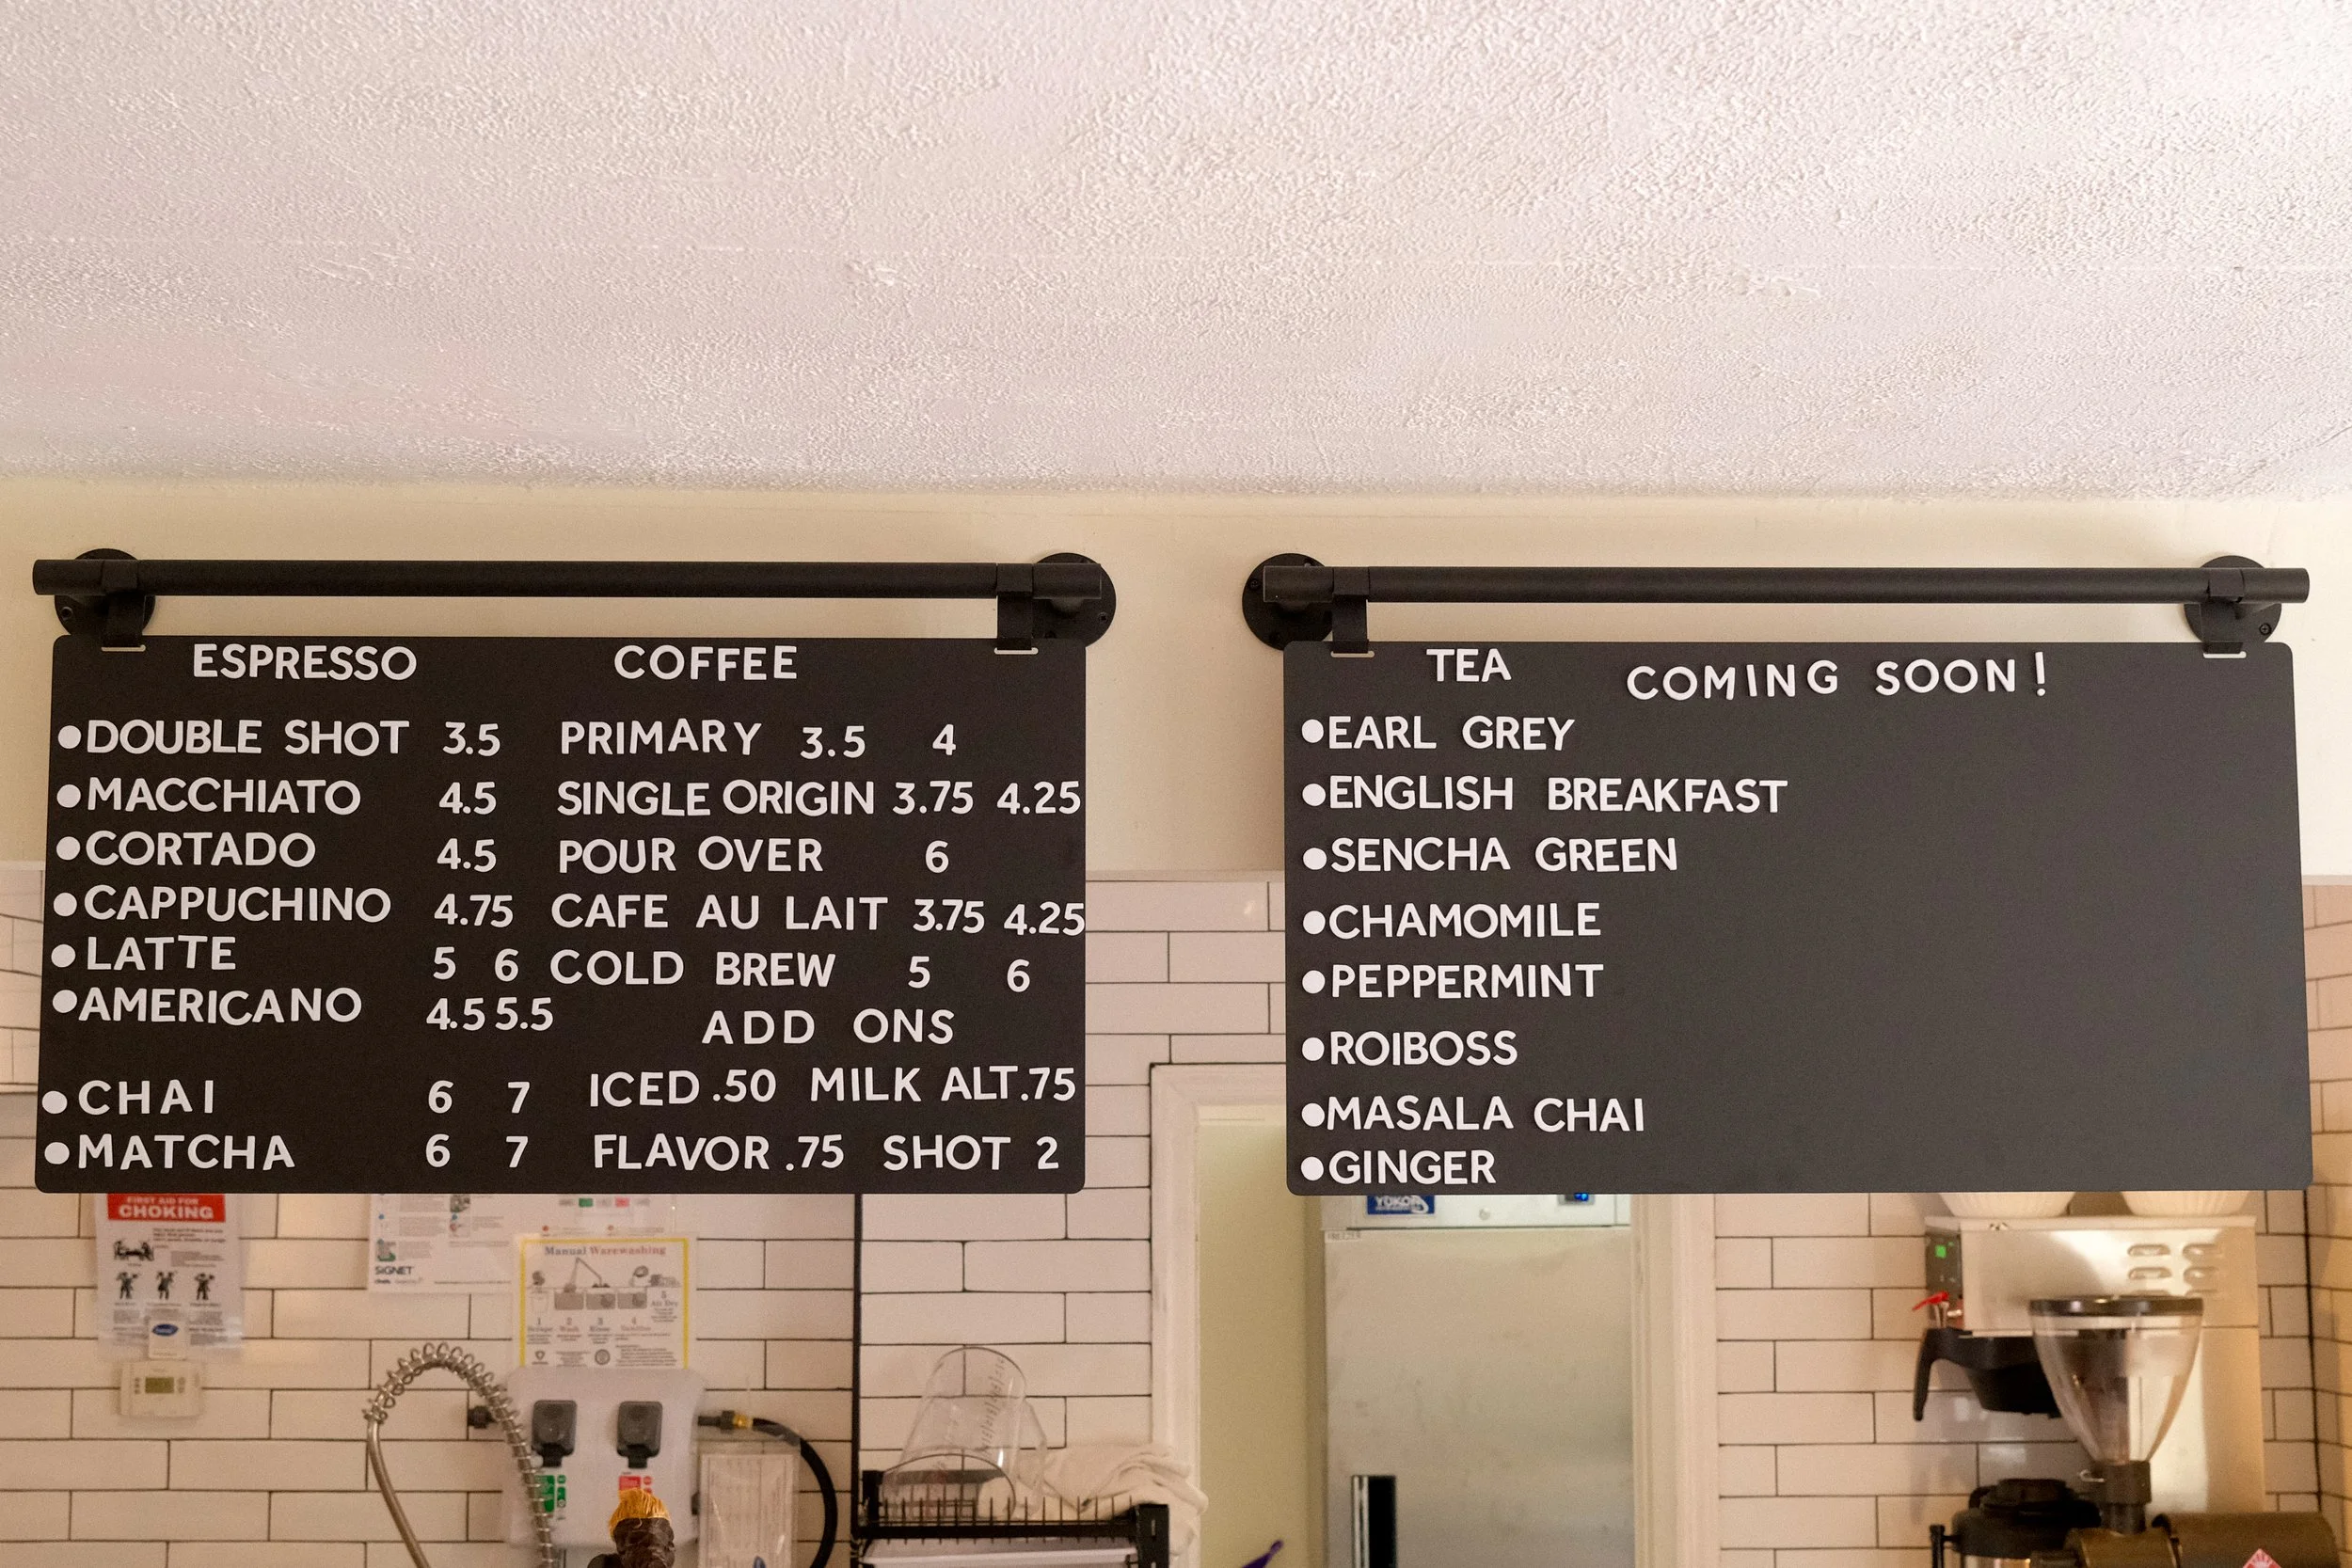 ESPRESSO
DOUBLE SHOT 3.5
MACCHIATO 4.5
CORTADO 4.5
CAPPUCHINO 4.75
LATTE 5 6
AMERICANO 4.5 5.5
CHAI 6 7
MATCHA 6 7
COFFEE
PRIMARY 3.5 4
SINGLE ORIGIN 3.75 4.25
POUR OVER 6
CAFE AU LAIT 3.75 4.25
COLD BREW 5 6
ADD ONS
ICED .50 MILK ALT .75
FLAVOR .75 SHOT 2
TEA COMING SOON!
EARL GREY
ENGLISH BREAKFAST
SENCHA GREEN
CHAMOMILE
PEPPERMINT
ROIBOSS
MASALA CHAI
GINGER
FIRST AID FOR
CHOKING
SIGNET
Manual Warewashing
1 2 3 4 5
Wash
YUKON